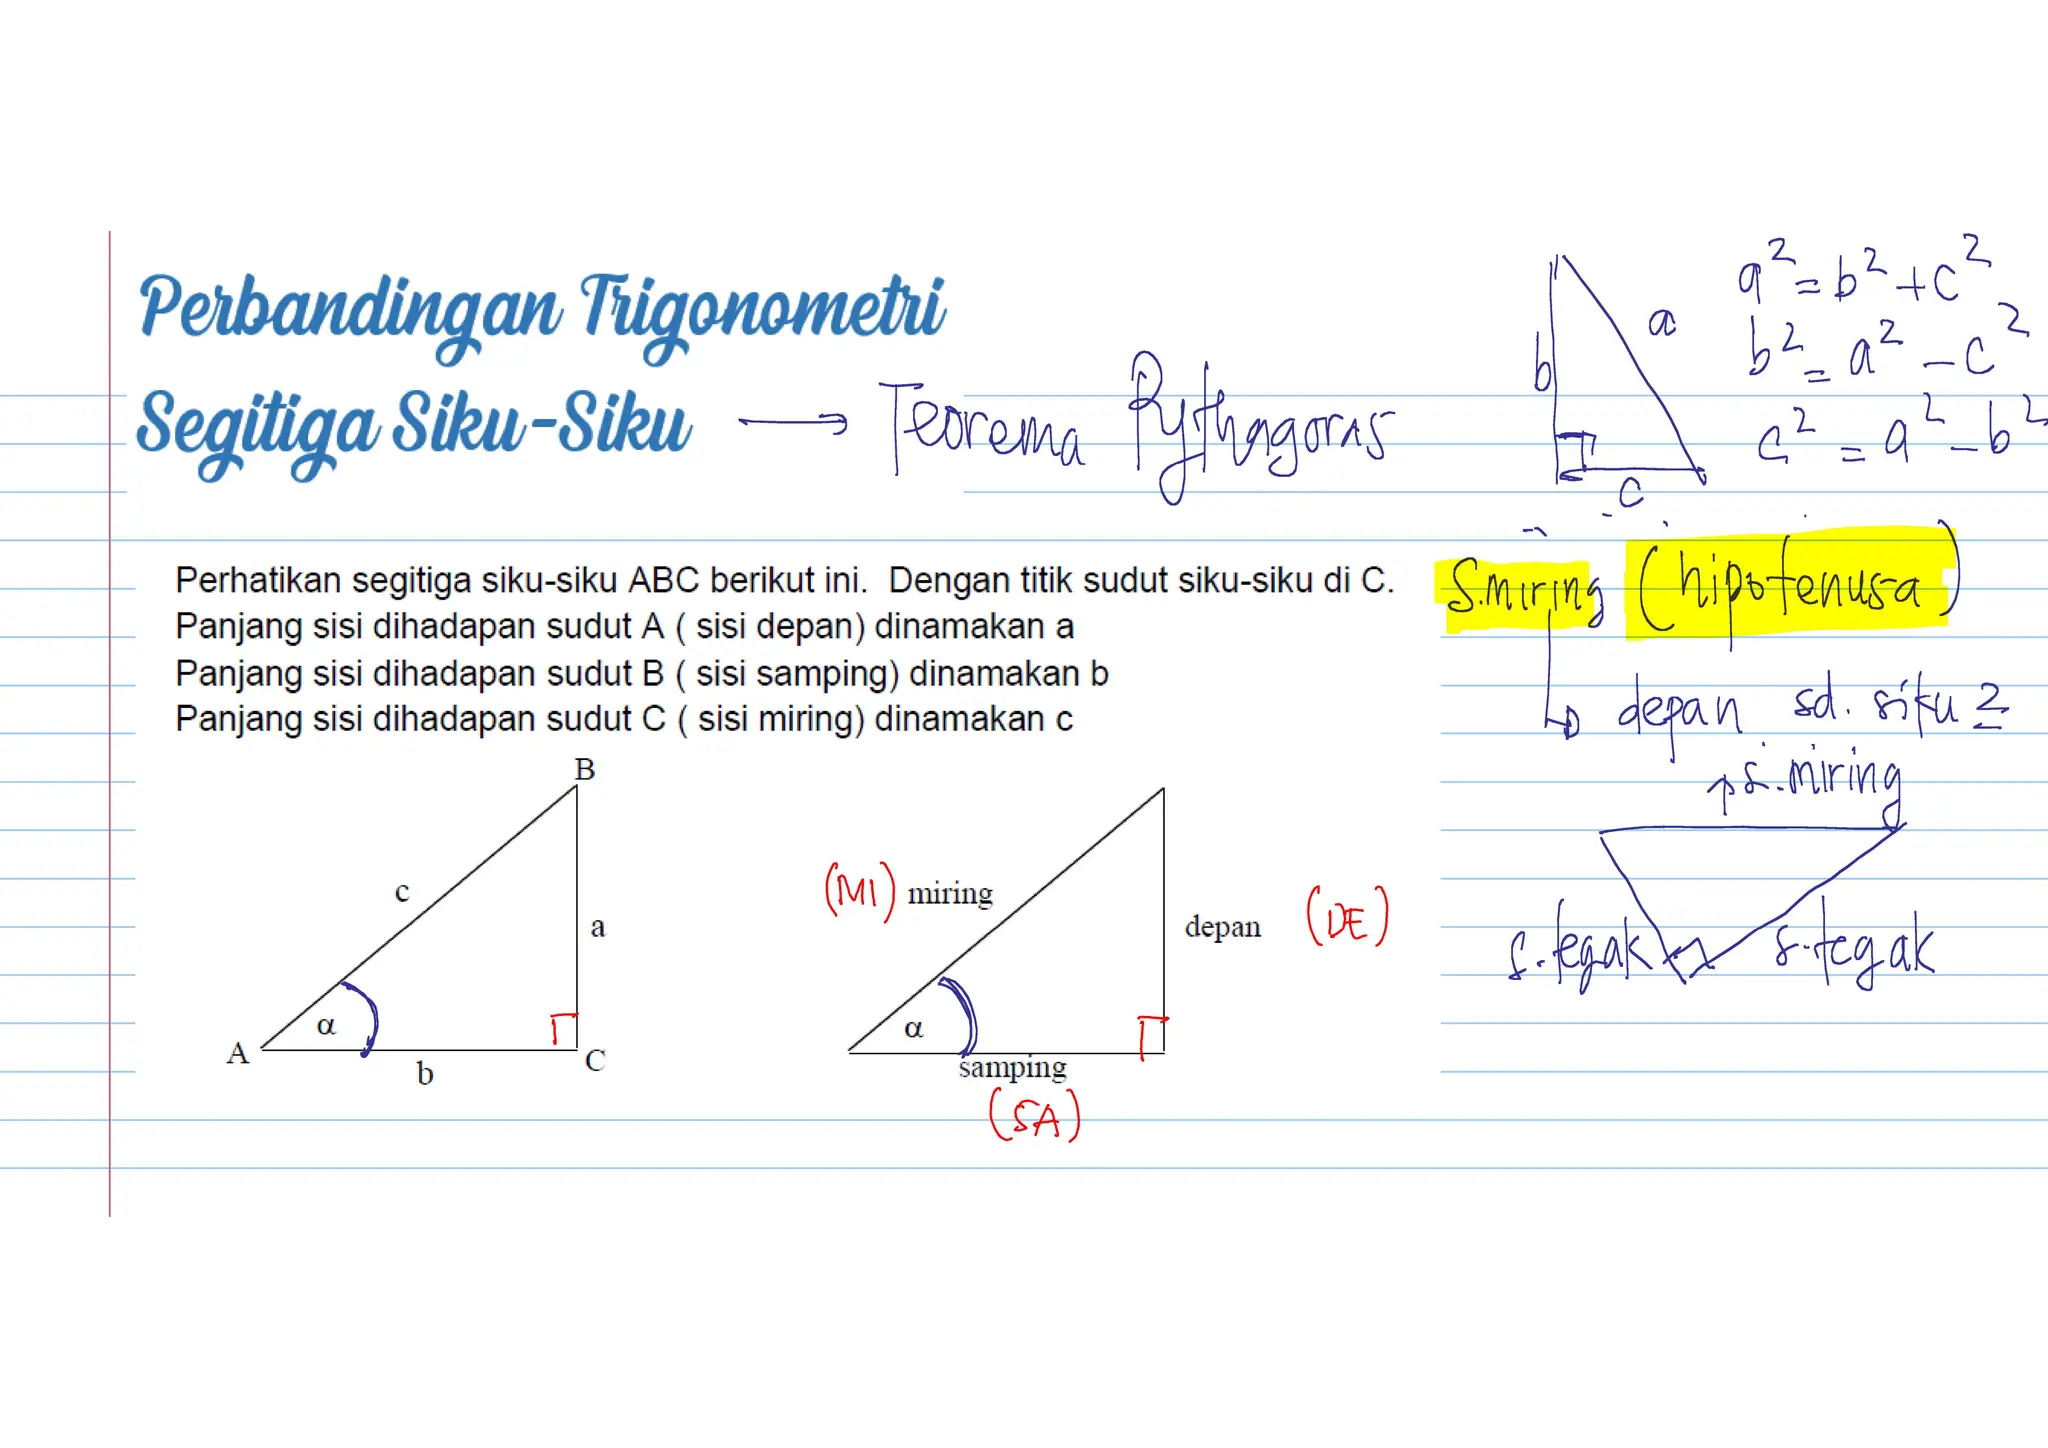 Perbandingan Trigonometri
Segitiga Siku-Siku → Teorema Pythagoras
b
a
c
a² = b² + c²
b² = a² - c²
c² = a² - b²
Perhatikan segitiga siku-siku ABC berikut ini. Dengan titik sudut siku-siku di C.
Panjang sisi dihadapan sudut A ( sisi depan) dinamakan a
Panjang sisi dihadapan sudut B ( sisi samping) dinamakan b
Panjang sisi dihadapan sudut C ( sisi miring) dinamakan c
S.miring (hipotenusa)
↳ depan sd. siku 2
↑ s.miring
s.tegak
s.tegak
B
c
a
α
A
b
C
(MI) miring
depan (DE)
α
samping
(SA)